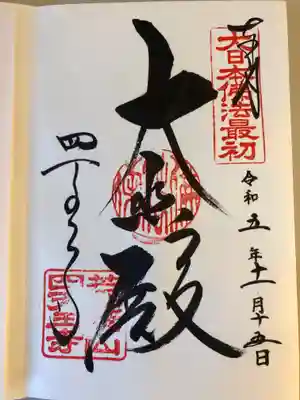 奉拝
大日本佛法最初
令和五年十一月十五日
大悲殿
四天王寺
荒陵山
四天王寺